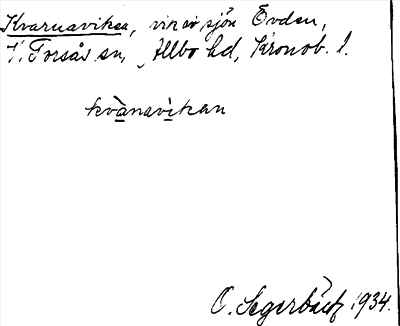 Kvarnaviken, vik av sjön Övden,
V. Torsås sn, Allbo hd, Kronob. l.
kvànavikan
O. Segerbäck 1934.